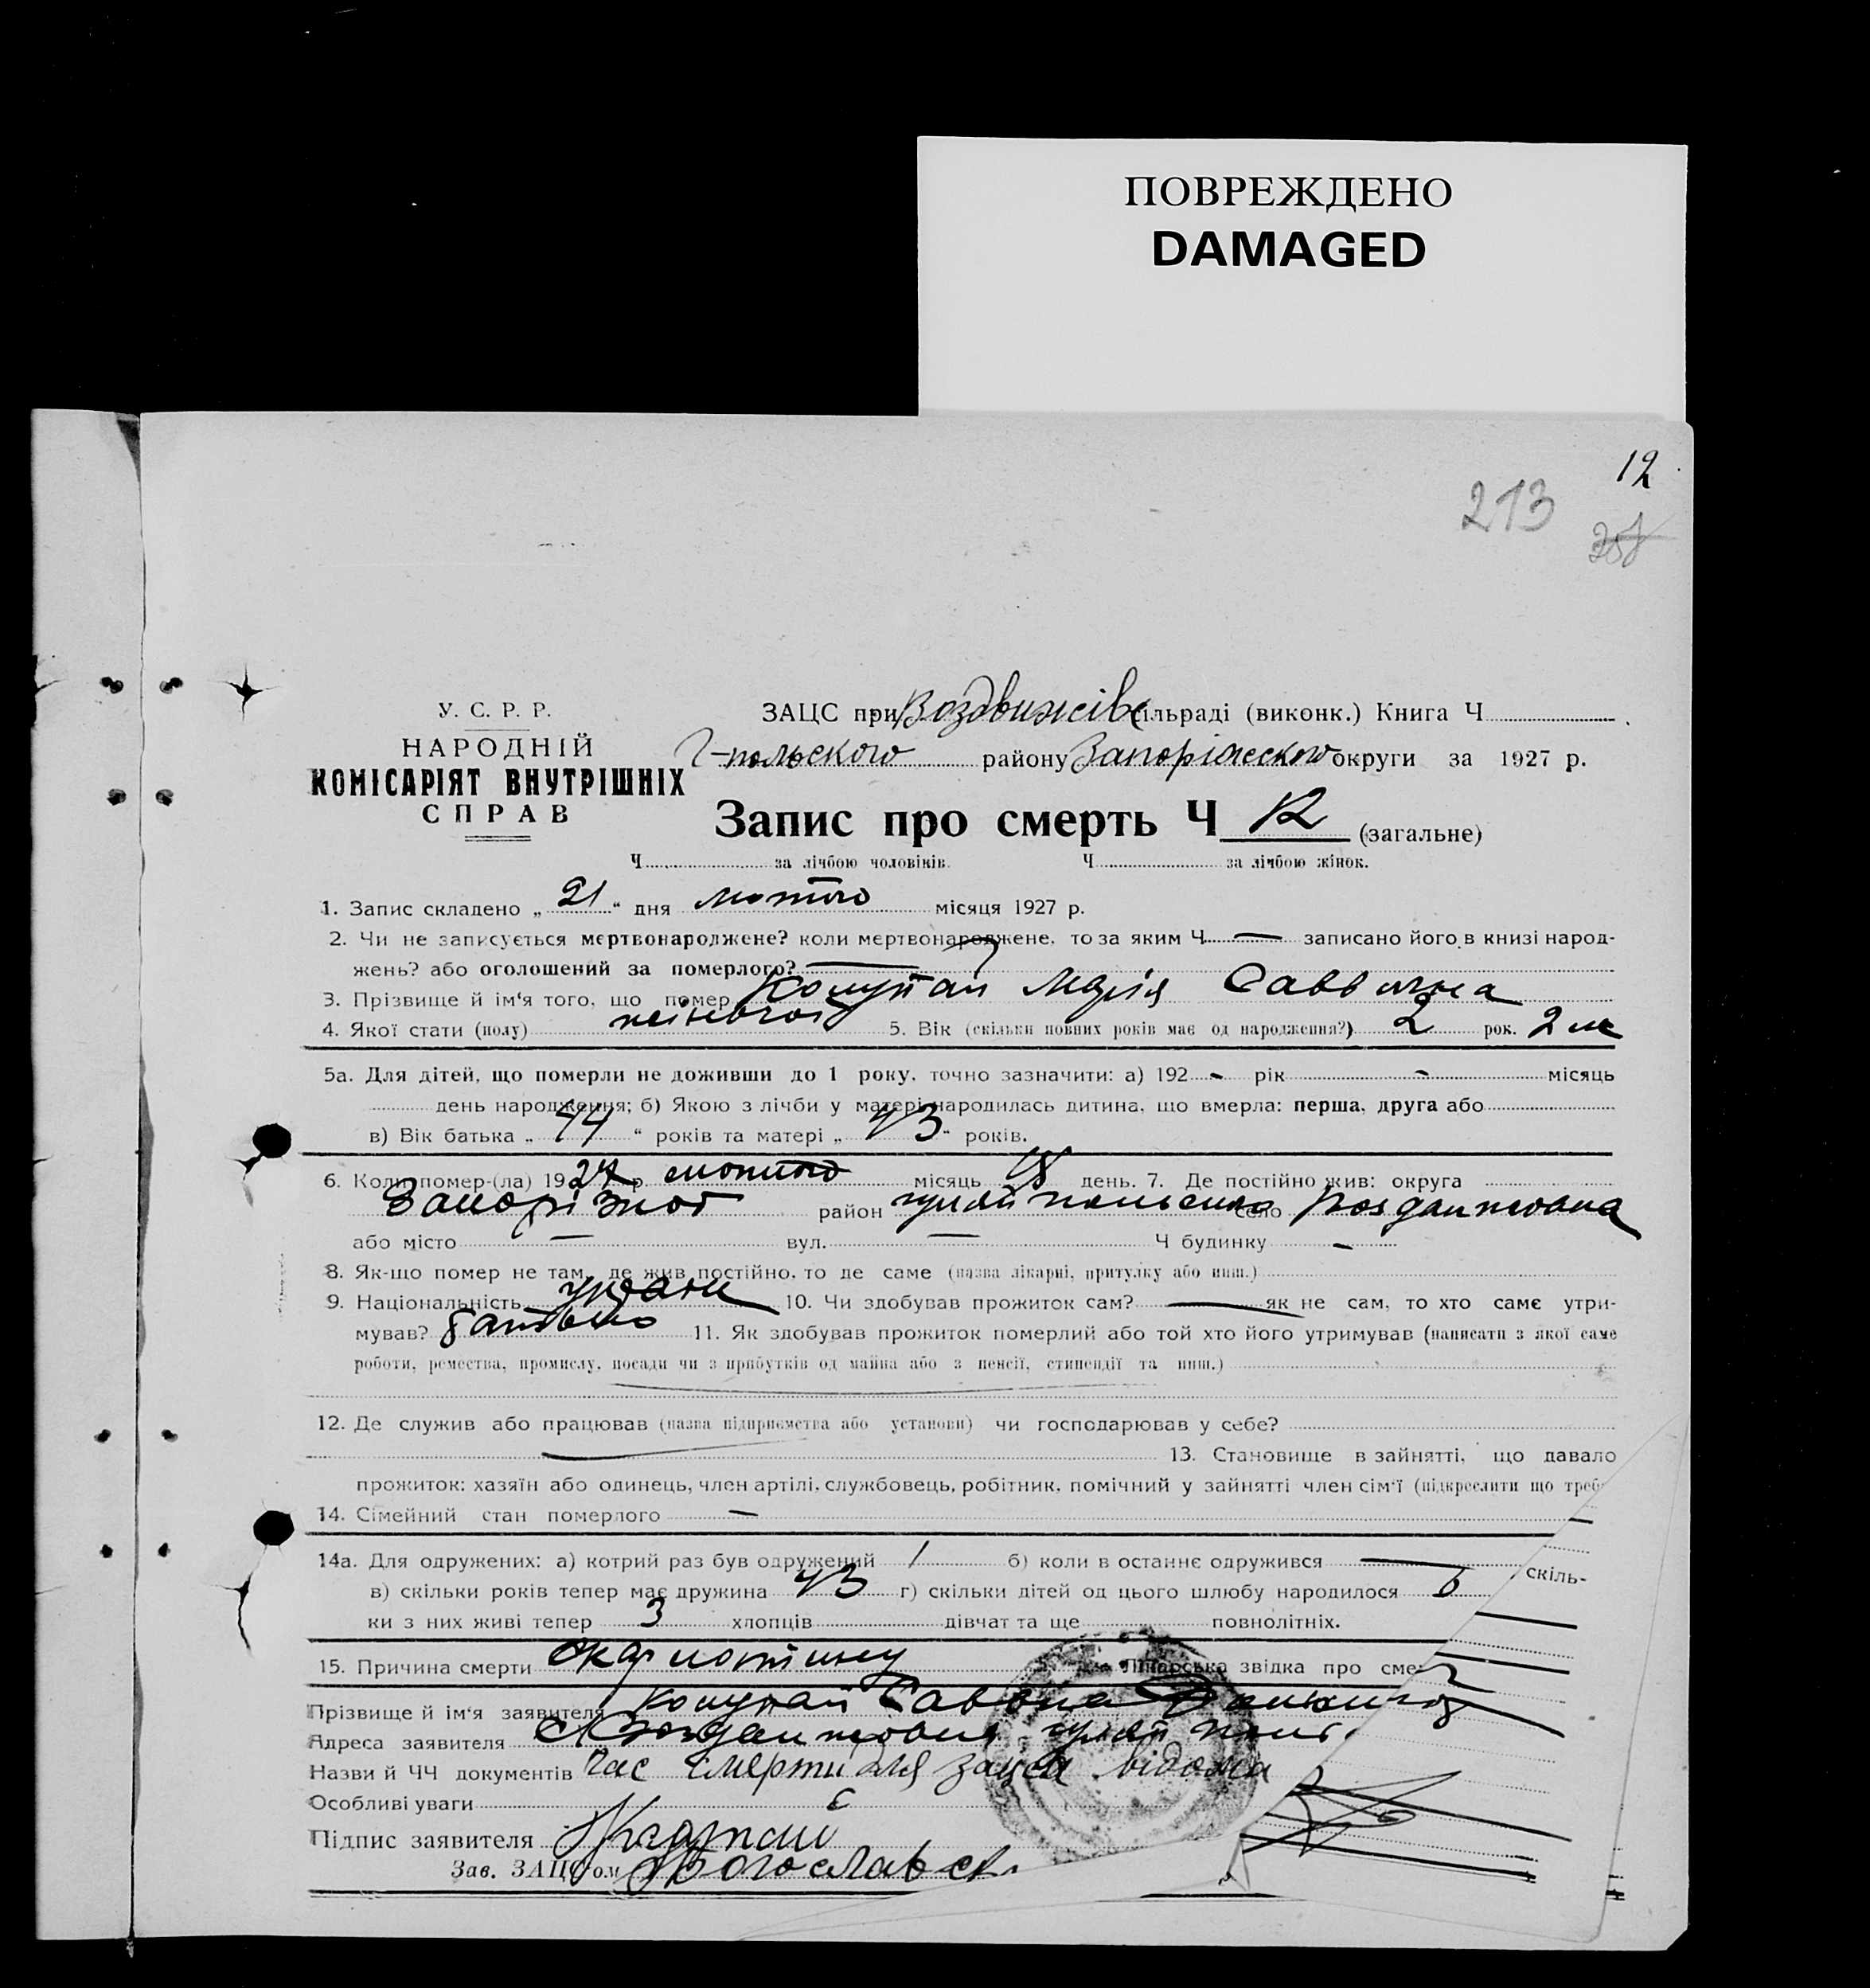 ПОВРЕЖДЕНО
DAMAGED
12
213
У. С. Р. Р.
НАРОДНІЙ
КОМІСАРІЯТ ВНУТРІШНІХ
СПРАВ
ЗАЦС при Воздвижівс сільраді (виконк.) Книга Ч
Г-польского району Запоріжского округи за 1927 р.
Запис про смерть Ч 12 (загальне)
Ч за лічбою чоловіків. Ч за лічбою жінок.
1. Запис складено „ 21 “ дня лютого місяця 1927 р.
2. Чи не записується мертвонароджене? коли мертвонароджене, то за яким Ч — записано його в книзі народ-
жень? або оголошений за померлого? —
3. Прізвище й ім'я того, що помер Марія Саввична
4. Якої стати (полу) жіночої 5. Вік (скільки повних років має од народження?) 2 рок. 2 м
5а. Для дітей, що померли не доживши до 1 року, точно зазначити: а) 192 - рік - місяць
день народження; б) Якою з лічби у матері народилась дитина, що вмерла: перша, друга або
в) Вік батька „ 44 “ років та матері „ 43 “ років.
6. Коли помер-(ла) 1927 р. лютого місяць 18 день. 7. Де постійно жив: округа
Запорізької район гуляйпольського село Воздвижовка
або місто — вул. — Ч будинку -
8. Як-що помер не там, де жив постійно, то де саме (назва лікарні, притулку або инш.)
9. Національність україн 10. Чи здобував прожиток сам? — як не сам, то хто саме утри-
мував? батько 11. Як здобував прожиток померлий або той хто його утримував (написати з якої саме
роботи, ремества, промислу, посади чи з прибутків од майна або з пенсії, стипендії та инш.)
12. Де служив або працював (назва підприємства або установи) чи господарював у себе?
13. Становище в зайнятті, що давало
прожиток: хазяїн або одинець, член артілі, службовець, робітник, помічний у зайнятті член сім'ї (підкреслити що треб
14. Сімейний стан померлого —
14а. Для одружених: а) котрий раз був одружений 1 б) коли в останнє одружився —
в) скільки років тепер має дружина 43 г) скільки дітей од цього шлюбу народилося 6 скіль-
ки з них живі тепер 3 хлопців дівчат та ще повнолітніх.
15. Причина смерти Лікарська звідка про сме
Прізвище й ім'я заявителя
Адреса заявителя гуляй поль
Назви й ЧЧ документів Час смерти для зацса відома
Особливі уваги є
Підпис заявителя
Зав. ЗАЦСом Богославск